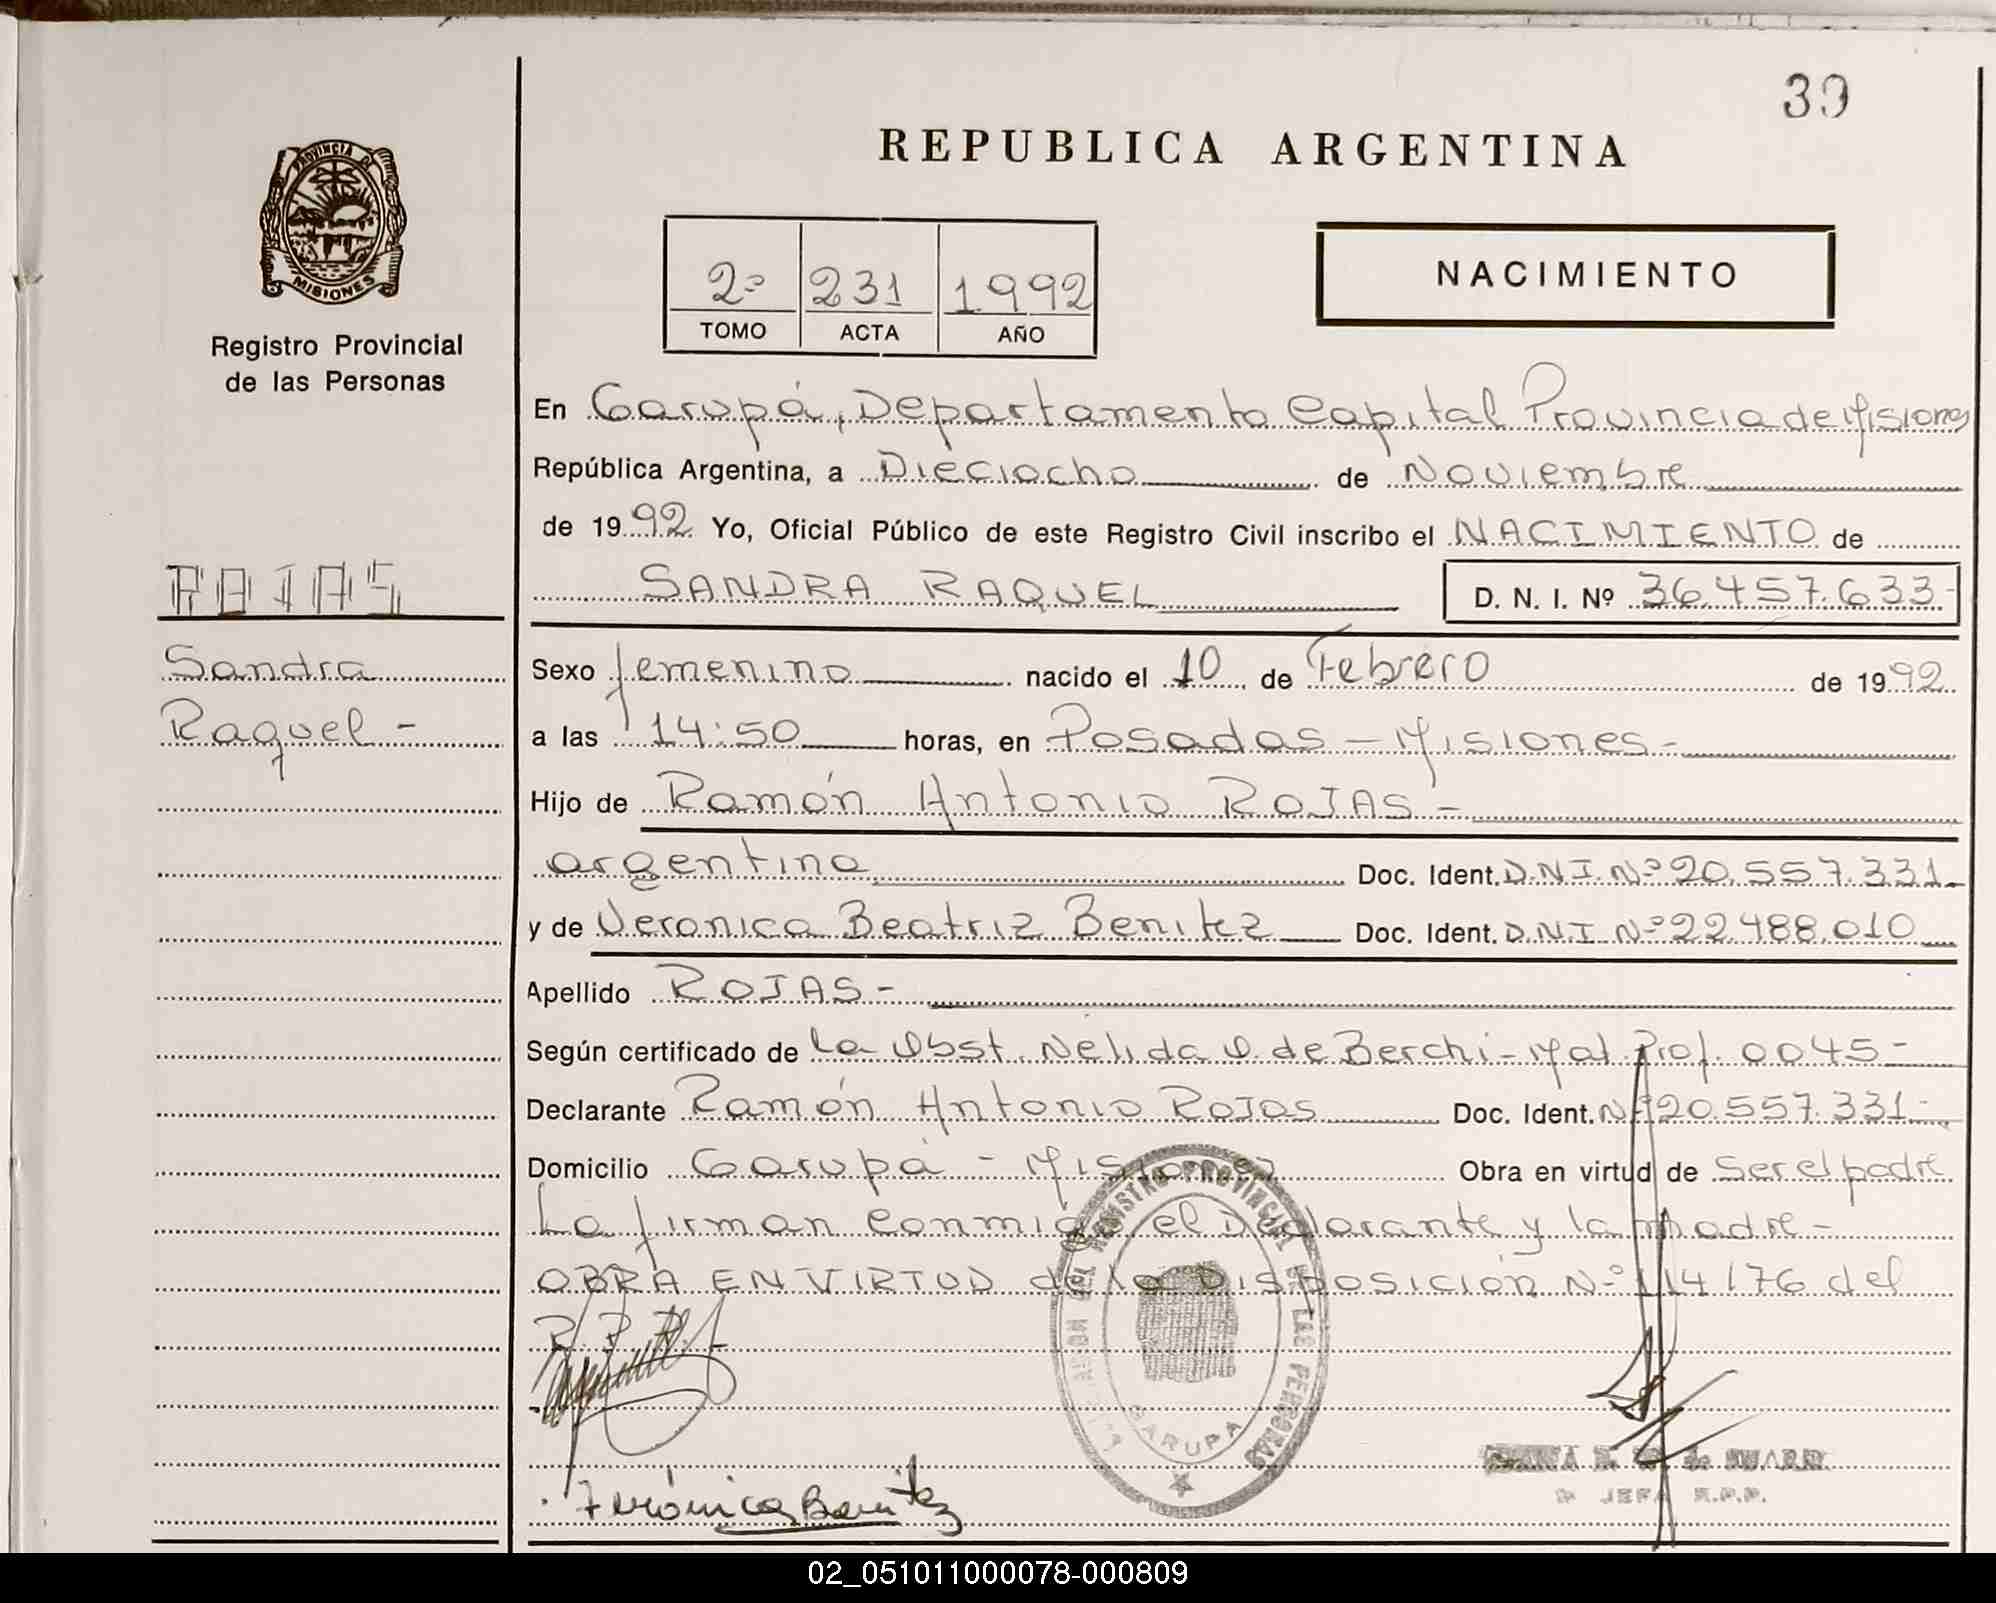 39
REPUBLICA ARGENTINA
PROVINCIA D
MISIONES
Registro Provincial
de las Personas
2º 231 1992
TOMO ACTA AÑO
NACIMIENTO
En Garupá, Departamento Capital Provincia de Misiones
República Argentina, a Dieciocho de Noviembre
de 1992 Yo, Oficial Público de este Registro Civil inscribo el NACIMIENTO de
SANDRA RAQUEL D. N. I. Nº 36.457.633-
ROJAS
Sandra
Raquel -
Sexo femenino nacido el 10 de Febrero de 1992
a las 14:50 horas, en Posadas - Misiones -
Hijo de Ramón Antonio ROJAS -
argentino Doc. Ident. D.N.I. Nº 20.557.331-
y de Veronica Beatriz Benitez Doc. Ident. D.N.I. Nº 22.488.010
Apellido ROJAS -
Según certificado de La Obst. Nelida O. de Berchi - Mat. Prof. 0045 -
Declarante Ramón Antonio Rojas Doc. Ident. Nº 20.557.331-
Domicilio Garupá - Misiones Obra en virtud de Ser el padre
La firman conmigo el Declarante y la madre -
OBRA EN VIRTUD de la DISPOSICIÓN Nº 114/76 del
R.P.P.
DEL REGISTRO PROVINCIAL DE LAS PERSONAS
GARUPA
Verónica Benitez
de
JEFA R.P.P.
02_051011000078-000809